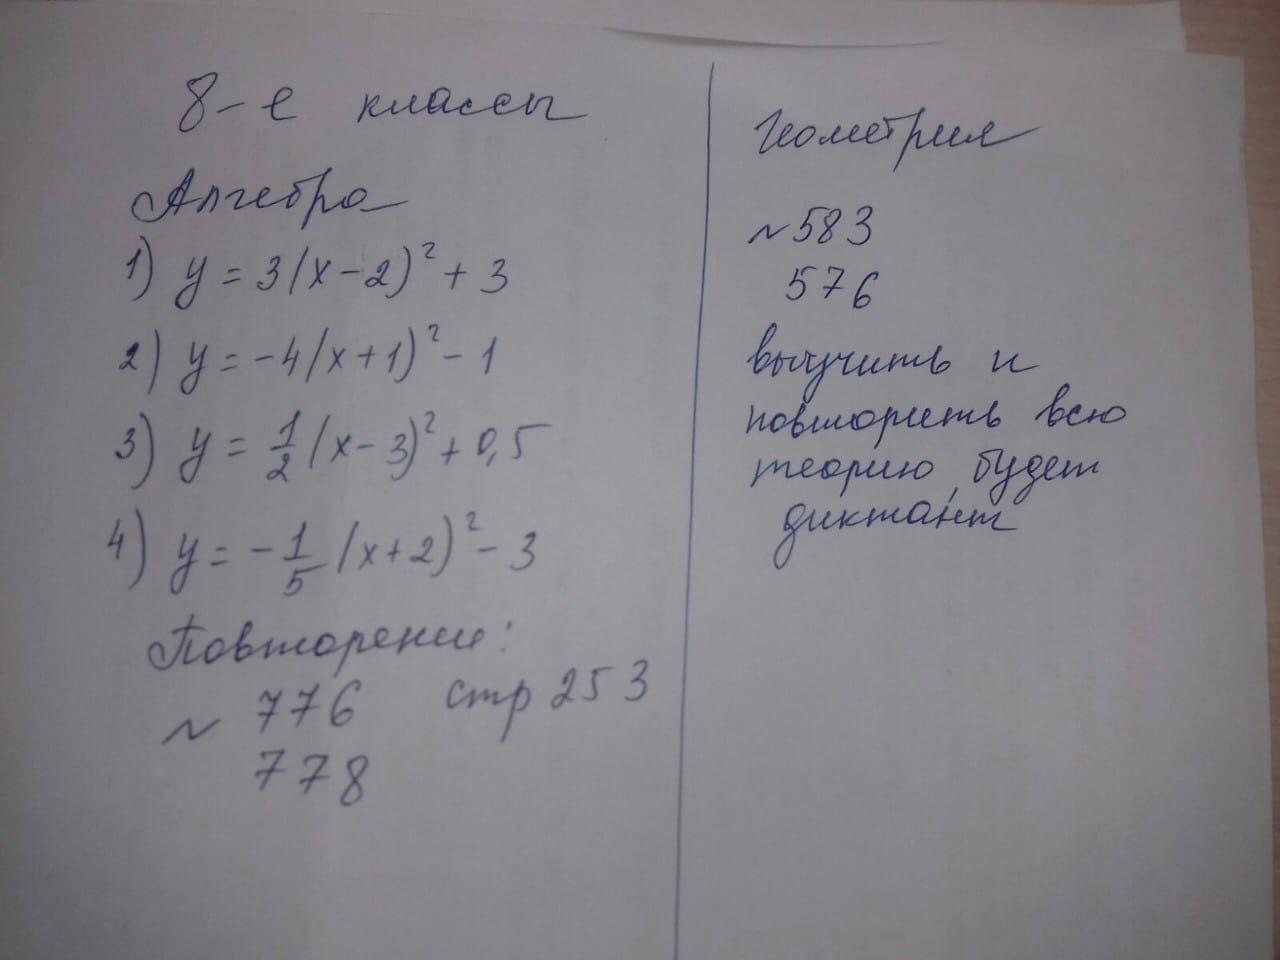 8-е классы
Алгебра
1) y = 3(x-2)² + 3
2) y = -4(x+1)² - 1
3) y = 1/2 (x-3)² + 0,5
4) y = -1/5 (x+2)² - 3
Повторение:
№ 776 стр 253
778
Геометрия
№ 583
576
выучить и
повторить всю
теорию, будет
диктант